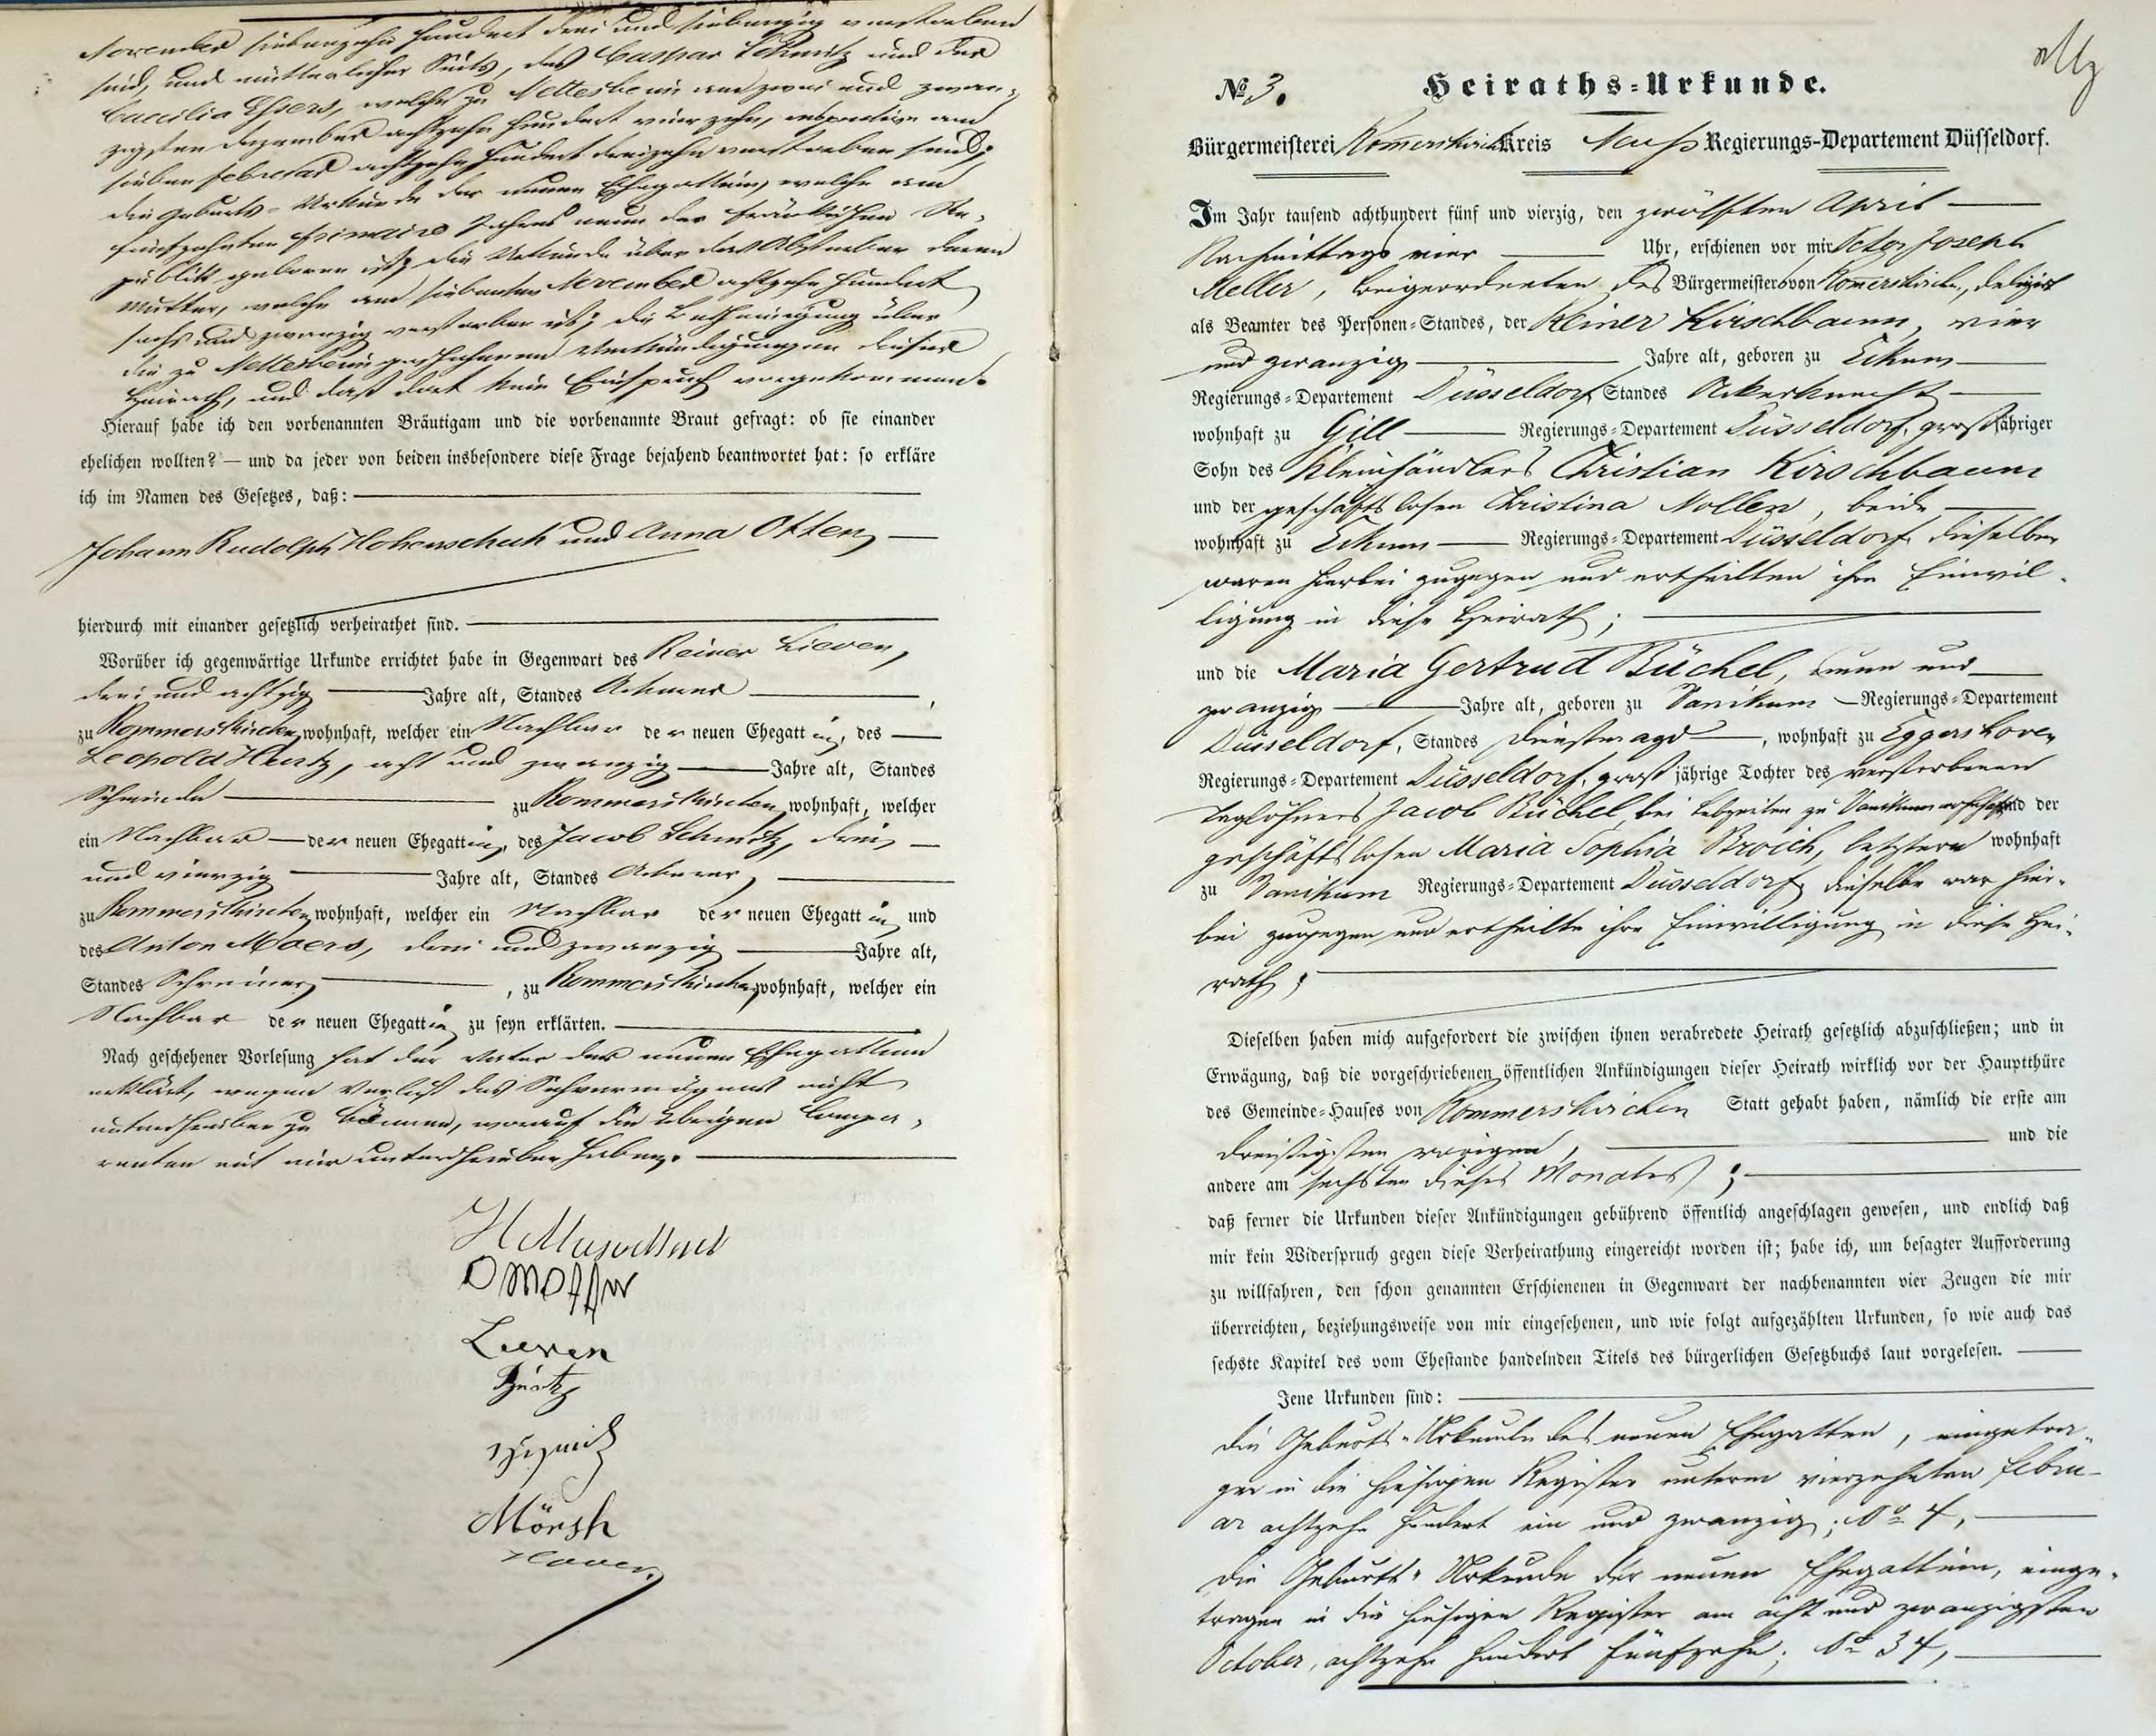 November siebenzehn hundert drei und siebenzig verstorben
sind, und mütterlicher Seits, des Caspar Schmitz und der
Caecilia Essers, welche zu Nettesheim am zwei und zwan-
zigsten Dezember achtzehn hundert vierzehn, respective am
sieben Februar achtzehn hundert dreizehn verstorben sind;
die Geburts-Urkunde der neuen Ehegattin, welche am
fünfzehnten frimaire Jahres neun der fränkischen Re-
publik geboren ist; die Urkunde über das Absterben deren
Mutter, welche am siebenten November achtzehn hundert
sechs und zwanzig verstorben ist; die Bescheinigung über
die zu Nettesheim geschehenen Verkündigungen dieser
Heirath, und daß dort kein Einspruch vorgekommen.
Hierauf habe ich den vorbenannten Bräutigam und die vorbenannte Braut gefragt: ob sie einander
ehelichen wollten? — und da jeder von beiden insbesondere diese Frage bejahend beantwortet hat: so erkläre
ich im Namen des Gesetzes, daß:
Johann Rudolph Hohenschuh und Anna Otten
hierdurch mit einander gesetzlich verheirathet sind.
Worüber ich gegenwärtige Urkunde errichtet habe in Gegenwart des Reiner Lieven,
drei und achtzig Jahre alt, Standes Ackerer,
zu Rommerskirchen wohnhaft, welcher ein Nachbar der neuen Ehegattin, des
Leopold Hertz, acht und zwanzig Jahre alt, Standes
zu Rommerskirchen wohnhaft, welcher
ein Nachbar der neuen Ehegattin, des Jacob Schmitz, drei
und vierzig Jahre alt, Standes Ackerer,
zu Rommerskirchen wohnhaft, welcher ein Nachbar der neuen Ehegattin, und
des Anton Moers, drei und zwanzig Jahre alt,
Standes Schreiner, zu Rommerskirchen wohnhaft, welcher ein
Nachbar der neuen Ehegattin zu seyn erklärten.
Nach geschehener Vorlesung hat der Vater der neuen Ehegattin
erklärt, wegen Verlust des Sehvermögens nicht
unterschreiben zu können, worauf die übrigen Compa-
renten mit mir unterschrieben haben.
Lieven
Hertz
Schmitz
Mörsh
№ 3. Heiraths-Urkunde.
Bürgermeisterei Rommerskirchen Kreis Neuß Regierungs-Departement Düsseldorf.
Im Jahr tausend achthundert fünf und vierzig, den zwölften April
Nachmittags vier Uhr, erschienen vor mir Victor Joseph
Meller, beigeordneten des Bürgermeisters von Rommerskirchen, delegirt
als Beamter des Personen-Standes, der Reiner Kirschbaum, vier
und zwanzig Jahre alt, geboren zu Eckum
Regierungs-Departement Düsseldorf, Standes Ackerknecht
wohnhaft zu Gill Regierungs-Departement Düsseldorf, großjähriger
Sohn des Kleinhändlers Christian Kirschbaum
und der geschäftslosen Christina Nollen, beide
wohnhaft zu Eckum Regierungs-Departement Düsseldorf, dieselben
waren hierbei zugegen und ertheilten ihre Einwil-
ligung in diese Heirath;
und die Maria Gertrud Büchel, neun und
zwanzig Jahre alt, geboren zu Vanikum Regierungs-Departement
Düsseldorf, Standes Dienstmagd, wohnhaft zu Eggershoven
Regierungs-Departement Düsseldorf, großjährige Tochter des verstorbenen
Taglöhners Jacob Büchel, bei Lebzeiten zu Vanikum wohnhaft und der
geschäftslosen Maria Sophia Broich, letztere wohnhaft
zu Vanikum Regierungs-Departement Düsseldorf, dieselbe war hier-
bei zugegen und ertheilte ihre Einwilligung in diese Hei-
rath;
Dieselben haben mich aufgefordert die zwischen ihnen verabredete Heirath gesetzlich abzuschließen; und in
Erwägung, daß die vorgeschriebenen öffentlichen Ankündigungen dieser Heirath wirklich vor der Hauptthüre
des Gemeinde-Hauses von Rommerskirchen Statt gehabt haben, nämlich die erste am
dreißigsten vorigen, und die
andere am sechsten dieses Monates;
daß ferner die Urkunden dieser Ankündigungen gebührend öffentlich angeschlagen gewesen, und endlich daß
mir kein Widerspruch gegen diese Verheirathung eingereicht worden ist; habe ich, um besagter Aufforderung
zu willfahren, den schon genannten Erschienenen in Gegenwart der nachbenannten vier Zeugen die mir
überreichten, beziehungsweise von mir eingesehenen, und wie folgt aufgezählten Urkunden, so wie auch das
sechste Kapitel des vom Ehestande handelnden Titels des bürgerlichen Gesetzbuchs laut vorgelesen.
Jene Urkunden sind:
die Geburts-Urkunde des neuen Ehegatten, eingetra-
gen in die hiesigen Register unterm vierzehnten Febru-
ar achtzehn hundert ein und zwanzig; No 4,
die Geburts-Urkunde der neuen Ehegattin, einge-
tragen in die hiesigen Register am acht und zwanzigsten
October, achtzehn hundert fünfzehn; No 34,